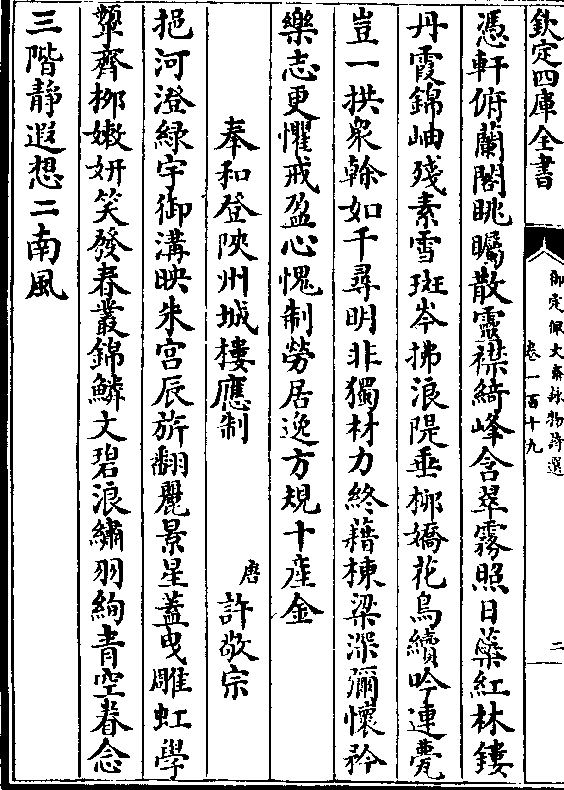 欽定四庫全書
御定佩文齋詠物詩選
卷一百十九
二
憑軒俯蘭閣眺矚散靈襟綺峰含翠霧照日蘂紅林鏤
丹霞錦岫殘素雪斑岑拂浪隄垂柳嬌花鳥續吟連甍
豈一拱衆幹如千尋明非獨材力終藉棟梁深彌懷矜
樂志更懼戒盈心愧制勞居逸方規十產金
奉和登陜州城樓應制
唐
許敬宗
挹河澄綠宇御溝映朱宮辰旂翻麗景星蓋曳雕虹學
嚬齊柳嫩妍笑發春叢錦鱗文碧浪繡羽絢青空眷念
三階靜遐想二南風